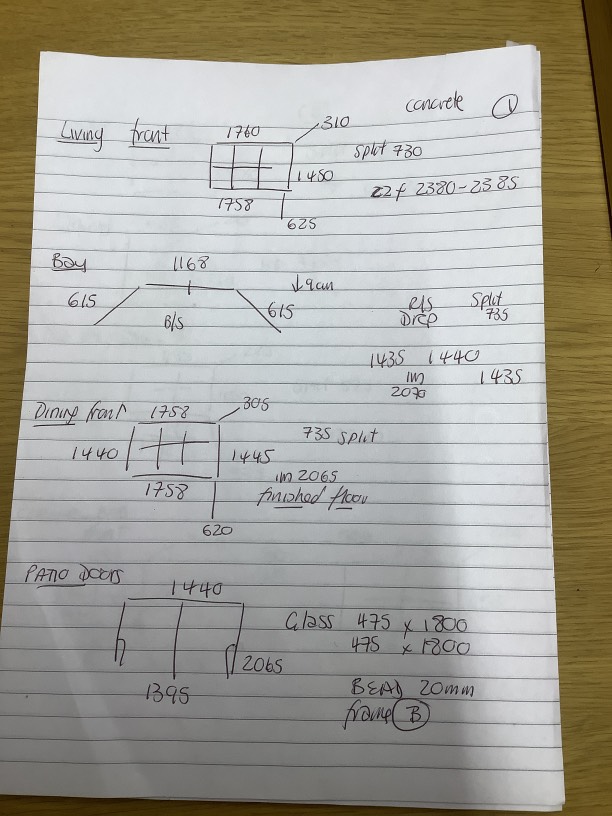 concrete 1
Living front 1760 310
split 730
1450
1758
625
c2f 2380-2385
Bay 1168
615 615
B/S
R/S Split
Drop 735
1435 1440
1435
Dining front 1758 305
735 split
1440 1445
1758
finished floor
620
PATIO DOORS
1440
Glass 475 x 1800
475 x 1800
2065
1395
BEAD 20mm
frame B